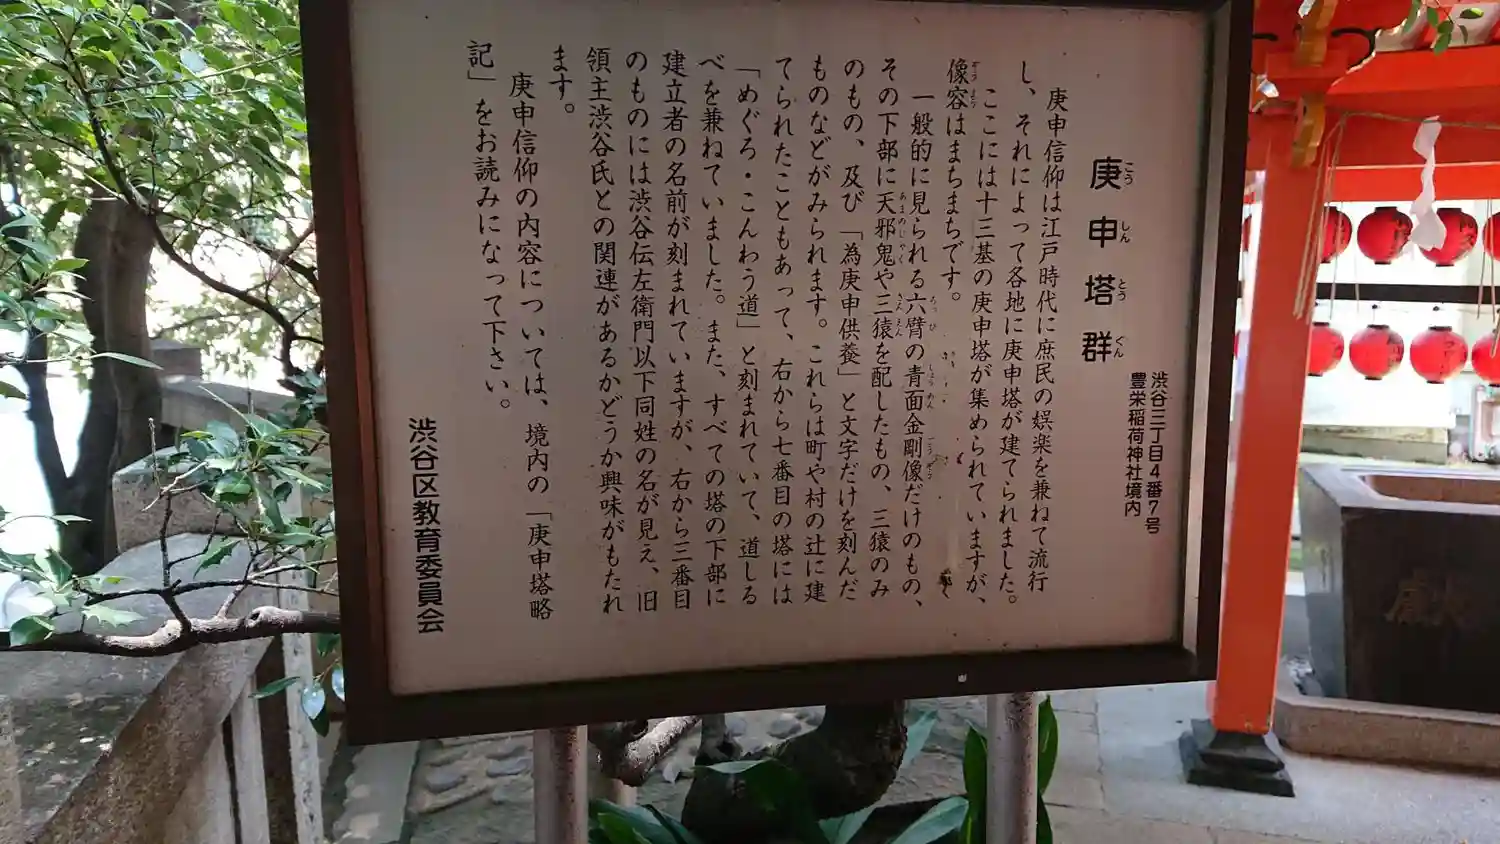 庚申塔群
渋谷三丁目4番7号
豊栄稲荷神社境内
庚申信仰は江戸時代に庶民の娯楽を兼ねて流行
し、それによって各地に庚申塔が建てられました。
ここには十三基の庚申塔が集められていますが、
像容はまちまちです。
一般的に見られる六臂の青面金剛像だけのもの、
その下部に天邪鬼や三猿を配したもの、三猿のみ
のもの、及び「為庚申供養」と文字だけを刻んだ
ものなどがみられます。これらは町や村の辻に建
てられたこともあって、右から七番目の塔には
「めぐろ・こんわう道」と刻まれていて、道しる
べを兼ねていました。また、すべての塔の下部に
建立者の名前が刻まれていますが、右から三番目
のものには渋谷伝左衛門以下同姓の名が見え、旧
領主渋谷氏との関連があるかどうか興味がもたれ
ます。
庚申信仰の内容については、境内の「庚申塔略
記」をお読みになって下さい。
渋谷区教育委員会